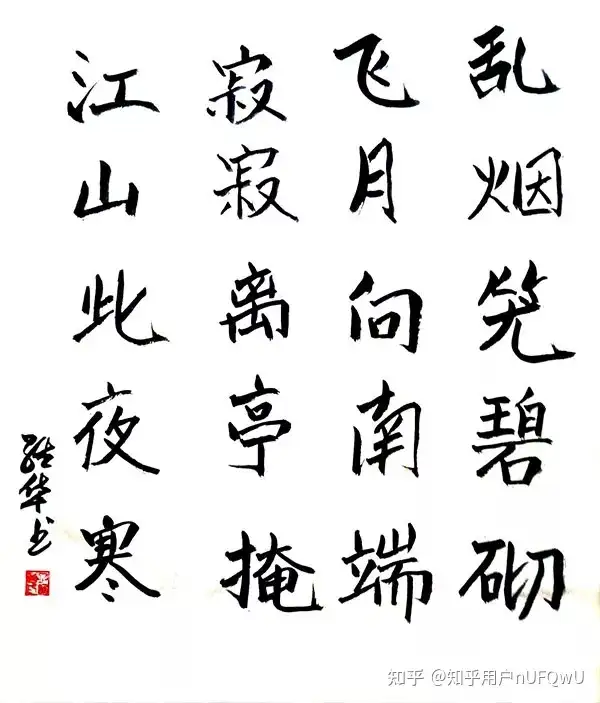 乱烟笼碧砌
飞月向南端
寂寂离亭掩
江山此夜寒
华书
知乎 @知乎用户nUFQwU